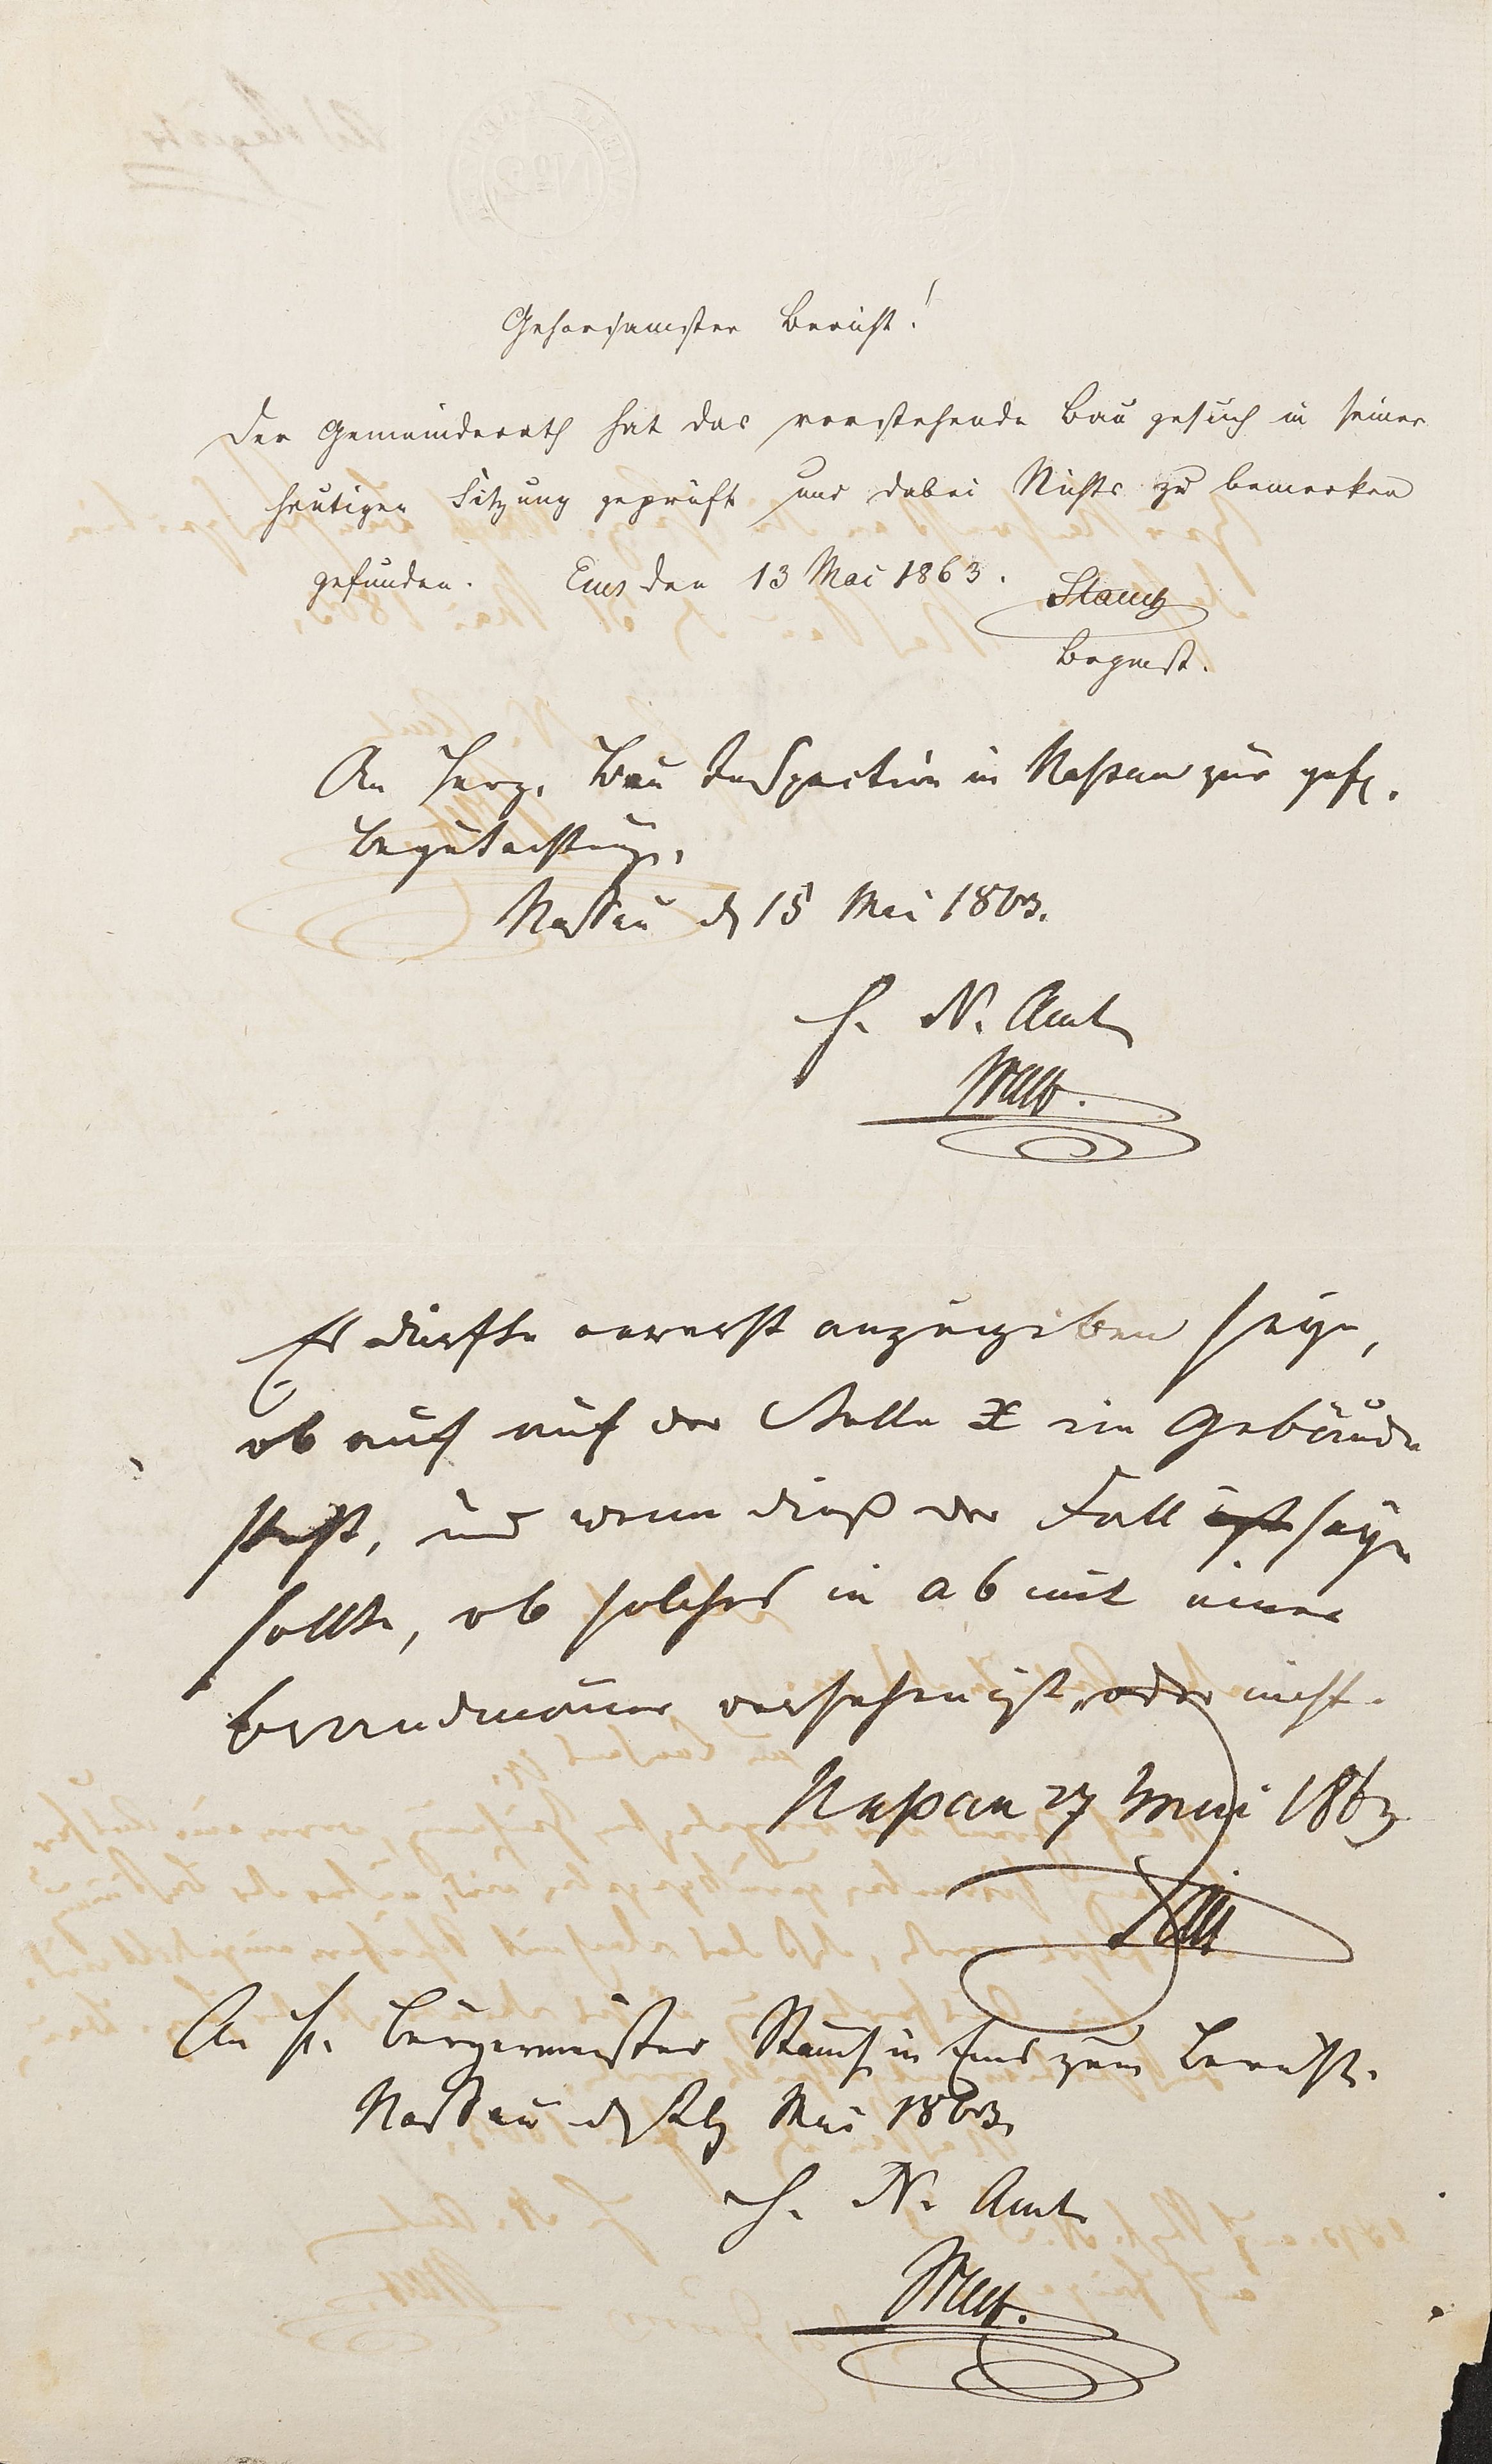 Gehorsamster Bericht!
Der Gemeinderath hat das vorstehende Bau gesuch in seiner
heutigen Sitzung geprüft und dabei Nichts zu bemerken
gefunden. Ems den 13 Mai 1863.
Stauch
Bgmst.
An Herz. Bau Inspection in Naßau zur gefl.
Begutachtung.
Nassau d 15 Mai 1863.
H. N. Amt
Es dürfte vorerst anzugeben seyn,
ob auch auf der Stelle X ein Gebäude
steht, und wenn dieß der Fall ist seyn
sollte, ob solches in a b mit einer
Brandmauer versehen ist, oder nicht.
Naßau 27 Mai 1863
An H. Bürgermeister Stauch in Ems zum Bericht.
Nassau d Mai 1863.
H. N. Amt